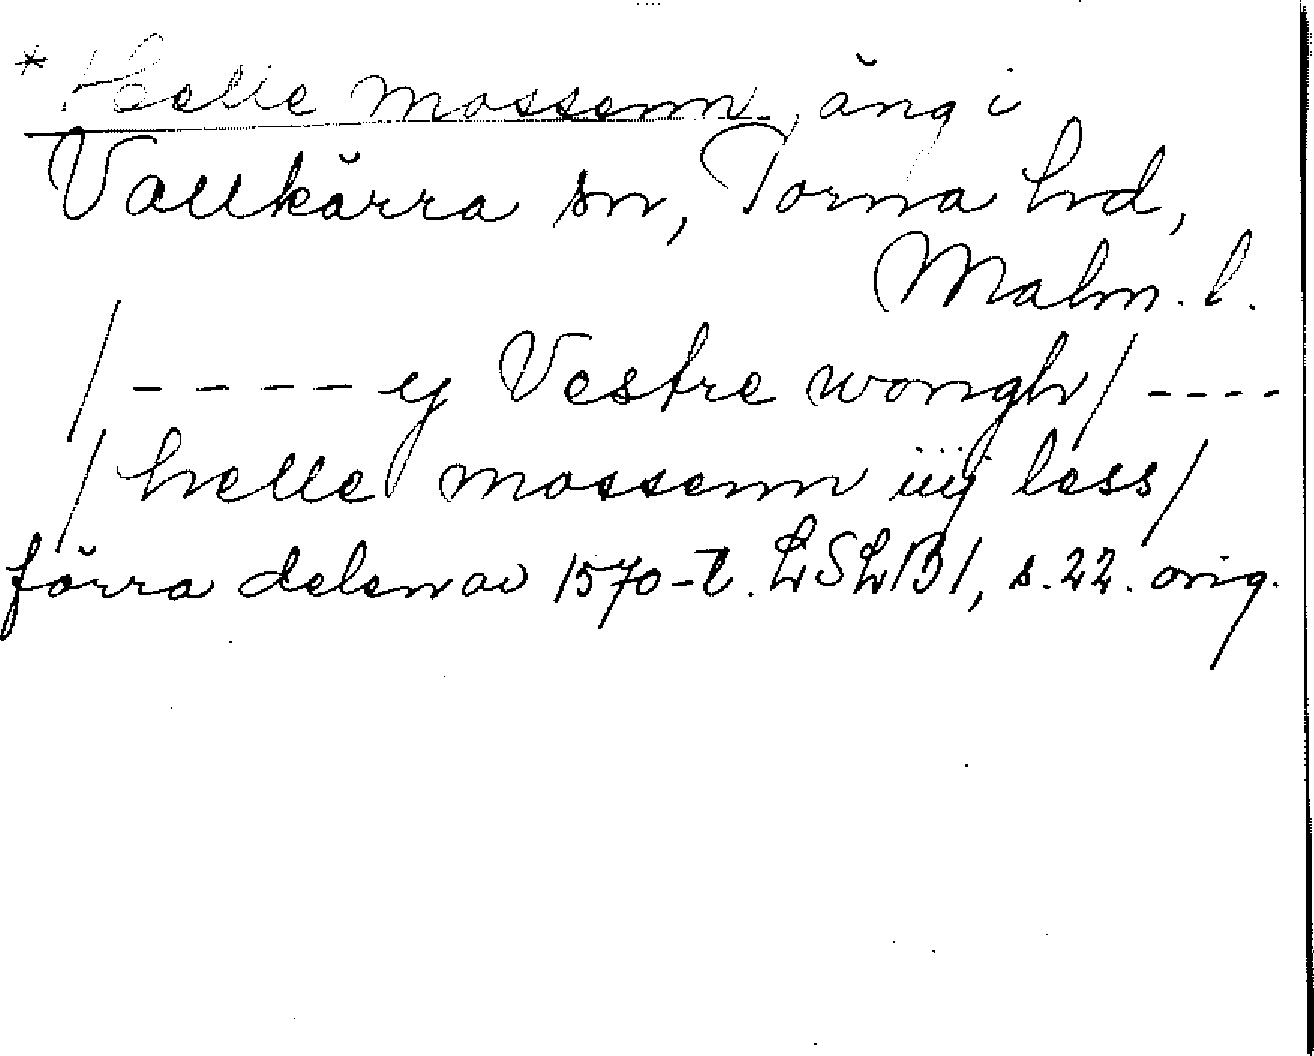 * Helle mossenn, äng i
Vallkärra sn, Torna hd,
Malm. l.
/ - - - - ij Vestre wongh / - - - -
/ helle mossenn iiij less /
förra delen av 1570-t. LSLB 1, s. 22. orig.